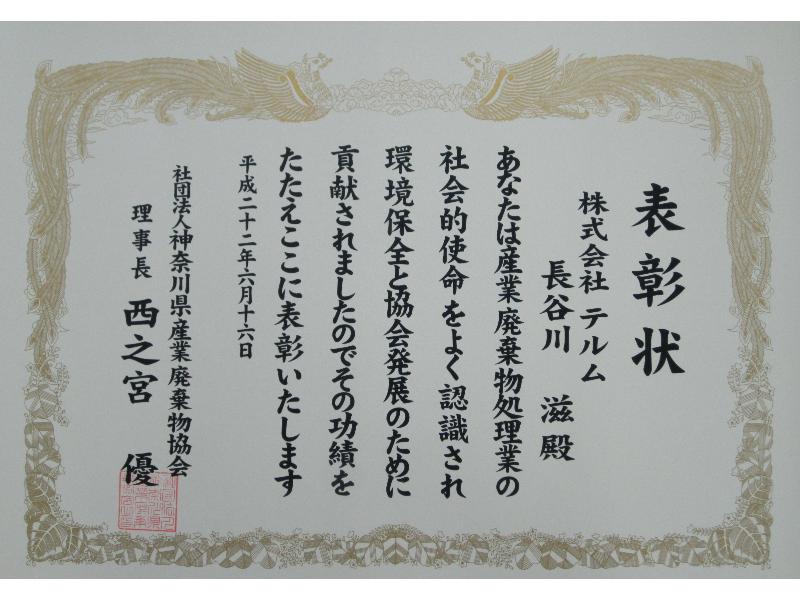 表彰状
株式会社 テルム
長谷川 滋 殿
あなたは産業廃棄物処理業の
社会的使命をよく認識され
環境保全と協会発展のために
貢献されましたのでその功績を
たたえここに表彰いたします
平成二十二年六月十六日
社団法人神奈川県産業廃棄物協会
理事長 西之宮 優